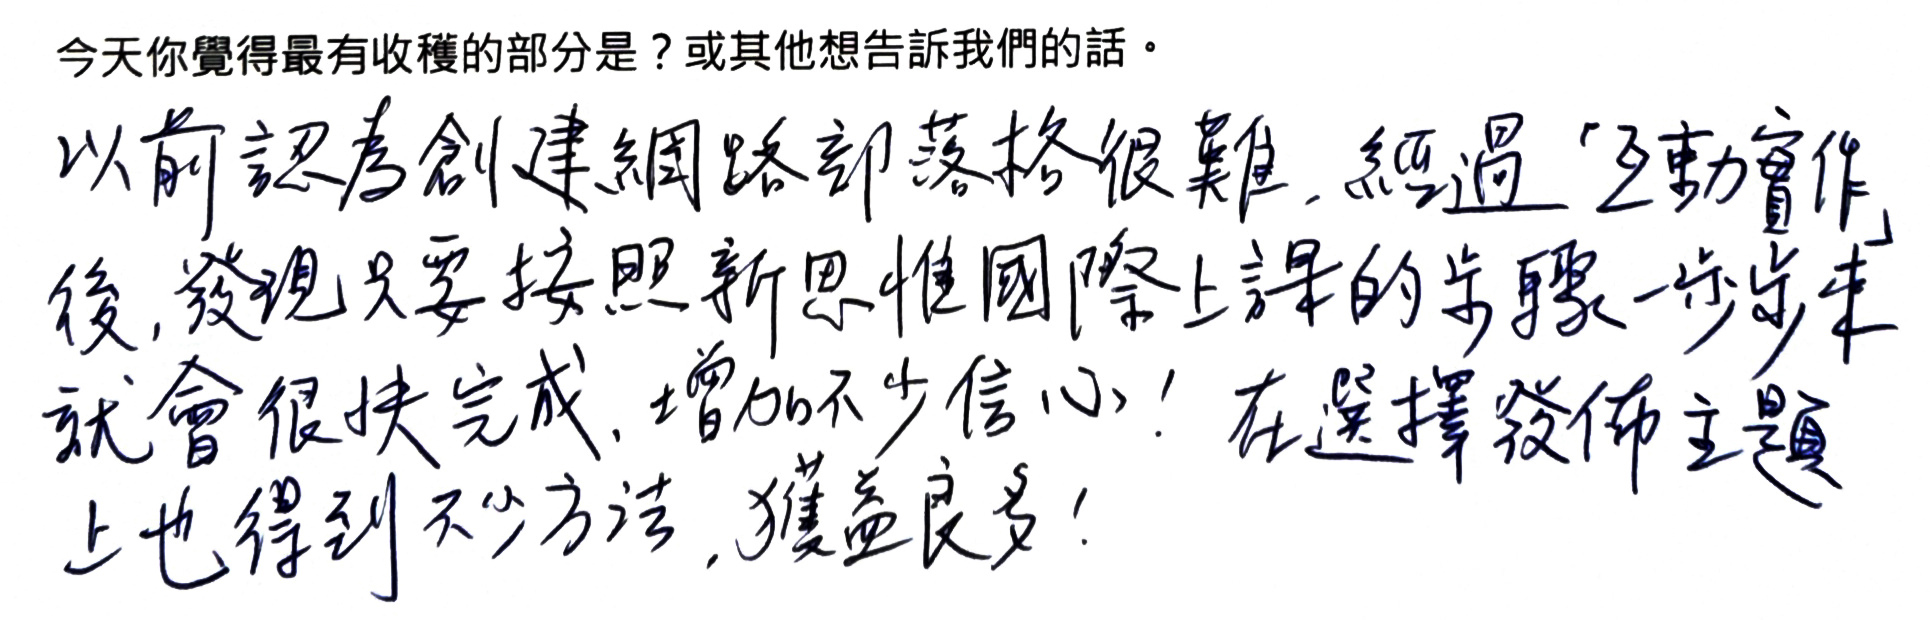 今天你覺得最有收穫的部分是？或其他想告訴我們的話。
以前認為創建網路部落格很難，經過「互動實作」
後，發現只要按照新思惟國際上課的步驟一步步來
就會很快完成，增加不少信心！在選擇發佈主題
上也得到不少方法，獲益良多！